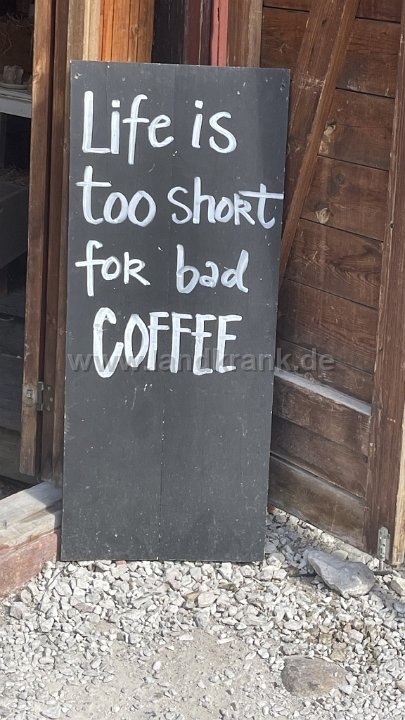 Life is
too short
for bad
COFFEE
www.landkrank.de